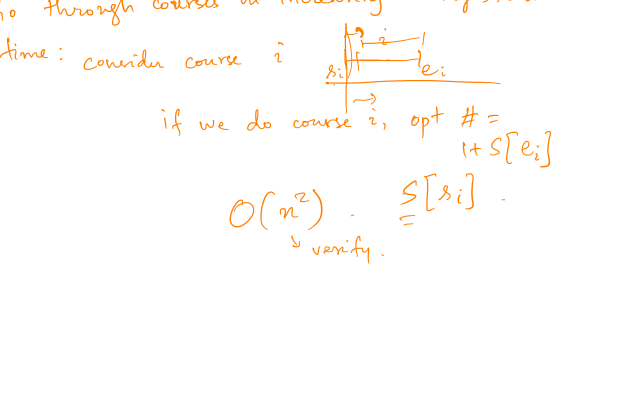 through courses in
time: consider course i
i
s_i e_i
if we do course i, opt # =
1+ S[e_i]
O(n²). S[s_i].
↳ verify.